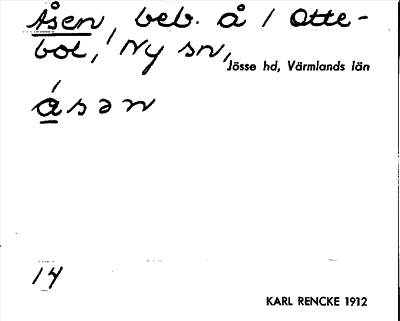 Åsen, beb. å 1 Otte-
bol, Ny sn,
Jösse hd, Värmlands län
åsən
14
KARL RENCKE 1912